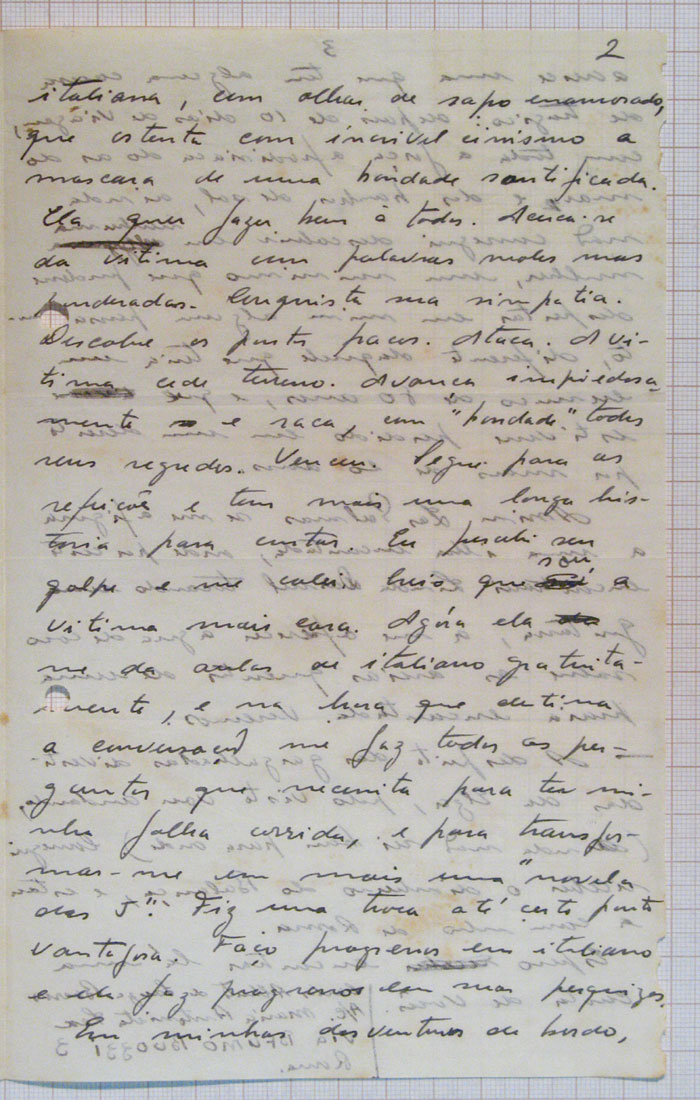 2
italiana, com olhar de sapo enamorado,
que ostenta com incrivel cinismo a
mascara de uma bondade santificada.
Ela quer fazer bem à todos. Acerca-se
da vitima com palavras moles mas
ponderadas. Conquista sua simpatia.
Descobre os pontos fracos. Ataca. A vi-
tima cede terreno. Avanca impiedosa-
mente e saca, com "bondade" todos
seus segredos. Venceu. Segue para as
refeições e tem mais uma longa his-
toria para contar. Eu percebi seu
golpe e me calei. Creio que sou a
vitima mais cara. Agóra ela
me da aulas de italiano gratuita-
mente, e na hora que destina
a conversação me faz todas as per-
guntas que necessita para ter mi-
nha folha corrida, e para transfor-
mar-me em mais uma "novela
das 5". Fiz uma troca até certo ponto
vantajosa. Faço progressos em italiano
e ela faz progressos em suas pesquizas.
Em minhas desventuras de bordo,